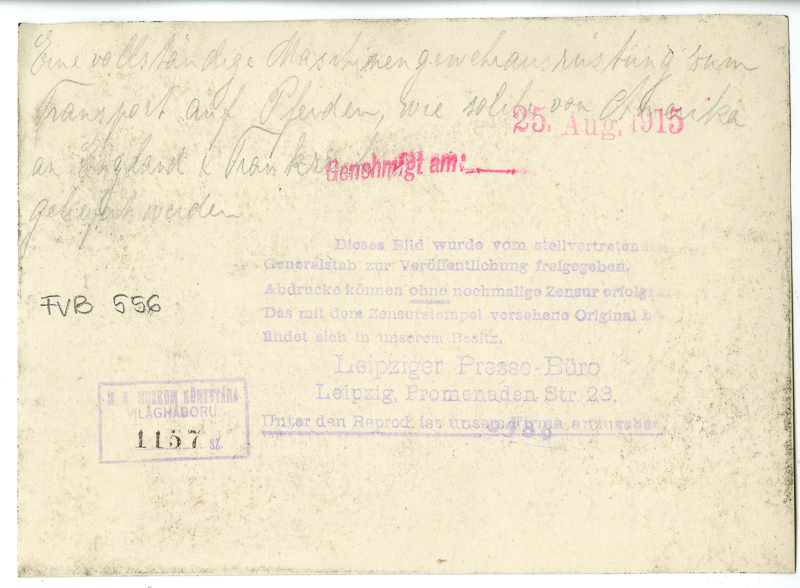 Eine vollständige Maschinengewehrausrüstung zum
Transport auf Pferden, wie solche von Amerika
25. Aug. 1915
an England & Frankreich
Genehmigt am:
geliefert werden
Dieses Bild wurde vom stellvertretenden
Generalstab zur Veröffentlichung freigegeben.
Abdrucke können ohne nochmalige Zensur erfolge
Das mit dem Zensurstempel versehene Original b
findet sich in unserem Besitz.
Leipziger Presse-Büro
Leipzig, Promenaden Str. 23.
Unter den Reprod. ist unsere Firma anzugeben.
FVB 556
M. N. MUZEUM KÖNYVTÁRA
VILÁGHÁBORU.
1157 SZ.